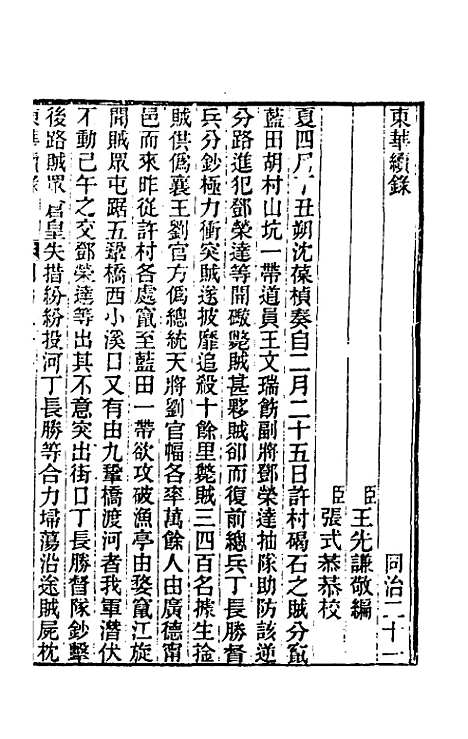 東華續錄　同治二十一
臣王先謙敬編
臣張式恭恭校
夏四月丑朔沈葆楨奏自二月二十五日許村碣石之賊分竄
藍田胡村山坑一帶道員王文瑞飭副將鄧榮達抽隊助防該逆
分路進犯鄧榮達等開礮斃賊甚夥賊卻而復前總兵丁長勝督
兵分鈔極力衝突賊遂披靡追殺十餘里斃賊三四百名據生擒
賊供僞襄王劉官方僞總統天將劉官幅各率萬餘人由廣德甯
邑而來昨從許村各處竄至藍田一帶欲攻破漁亭由婺竄江旋
聞賊眾屯踞五鞏橋西小溪口又有由九鞏橋渡河者我軍潛伏
不動己午之交鄧榮達等出其不意突出街口丁長勝督隊鈔擊
後路賊眾倉皇失措紛紛投河丁長勝等合力埽蕩沿途賊屍枕
東華續錄